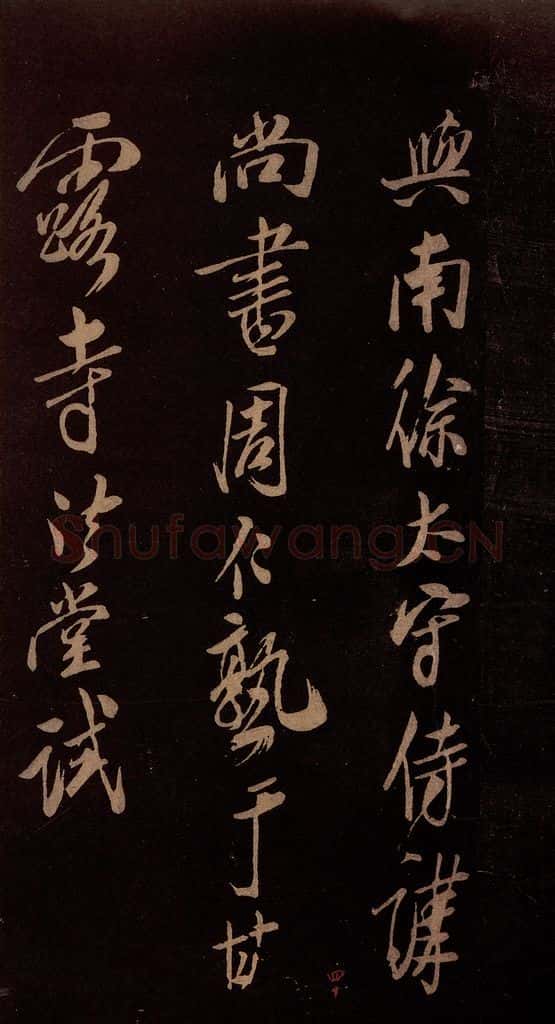 與南徐太守侍講
尚書周仁熟于甘
露寺法堂試
四十
Shufawang.CN